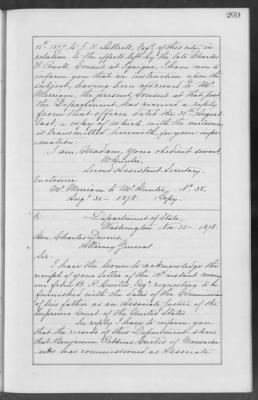 269
15th 1877 to J. H. Luttrell, Esqr. of this city, in
relation to the effects left by the late Charles
H. Powell, Consul at Iquique, I have now to
inform you that an instruction upon the
subject, having been addressed to Mr
Merriam, the present Consul at that port
the Department has received a reply
from that officer dated the 30th August
last, a copy of which with the enclosure
is transmitted herewith for your infor-
mation.
I am, Madam, Your obedient servant,
W Hunter,
Second Assistant Secretary.
Enclosure.
Mr. Merriam to Mr Hunter, No 38.
Aug. 30 - 1878. Copy.
Department of State,
Washington Nov. 25 - 1878.
Hon. Charles Devens,
Attorney General
Sir:
I have the honor to acknowledge the
receipt of your letter of the instant
one from B. R. Curtis Esqr. requesting to be
furnished with the dates of the Commission
of his father as an Associate Justice of the
Supreme Court of the United States.
In reply I have to inform you
that the records of this Department show
that Benjamin Robbins Curtis of Massachu-
setts was commissioned as Associate